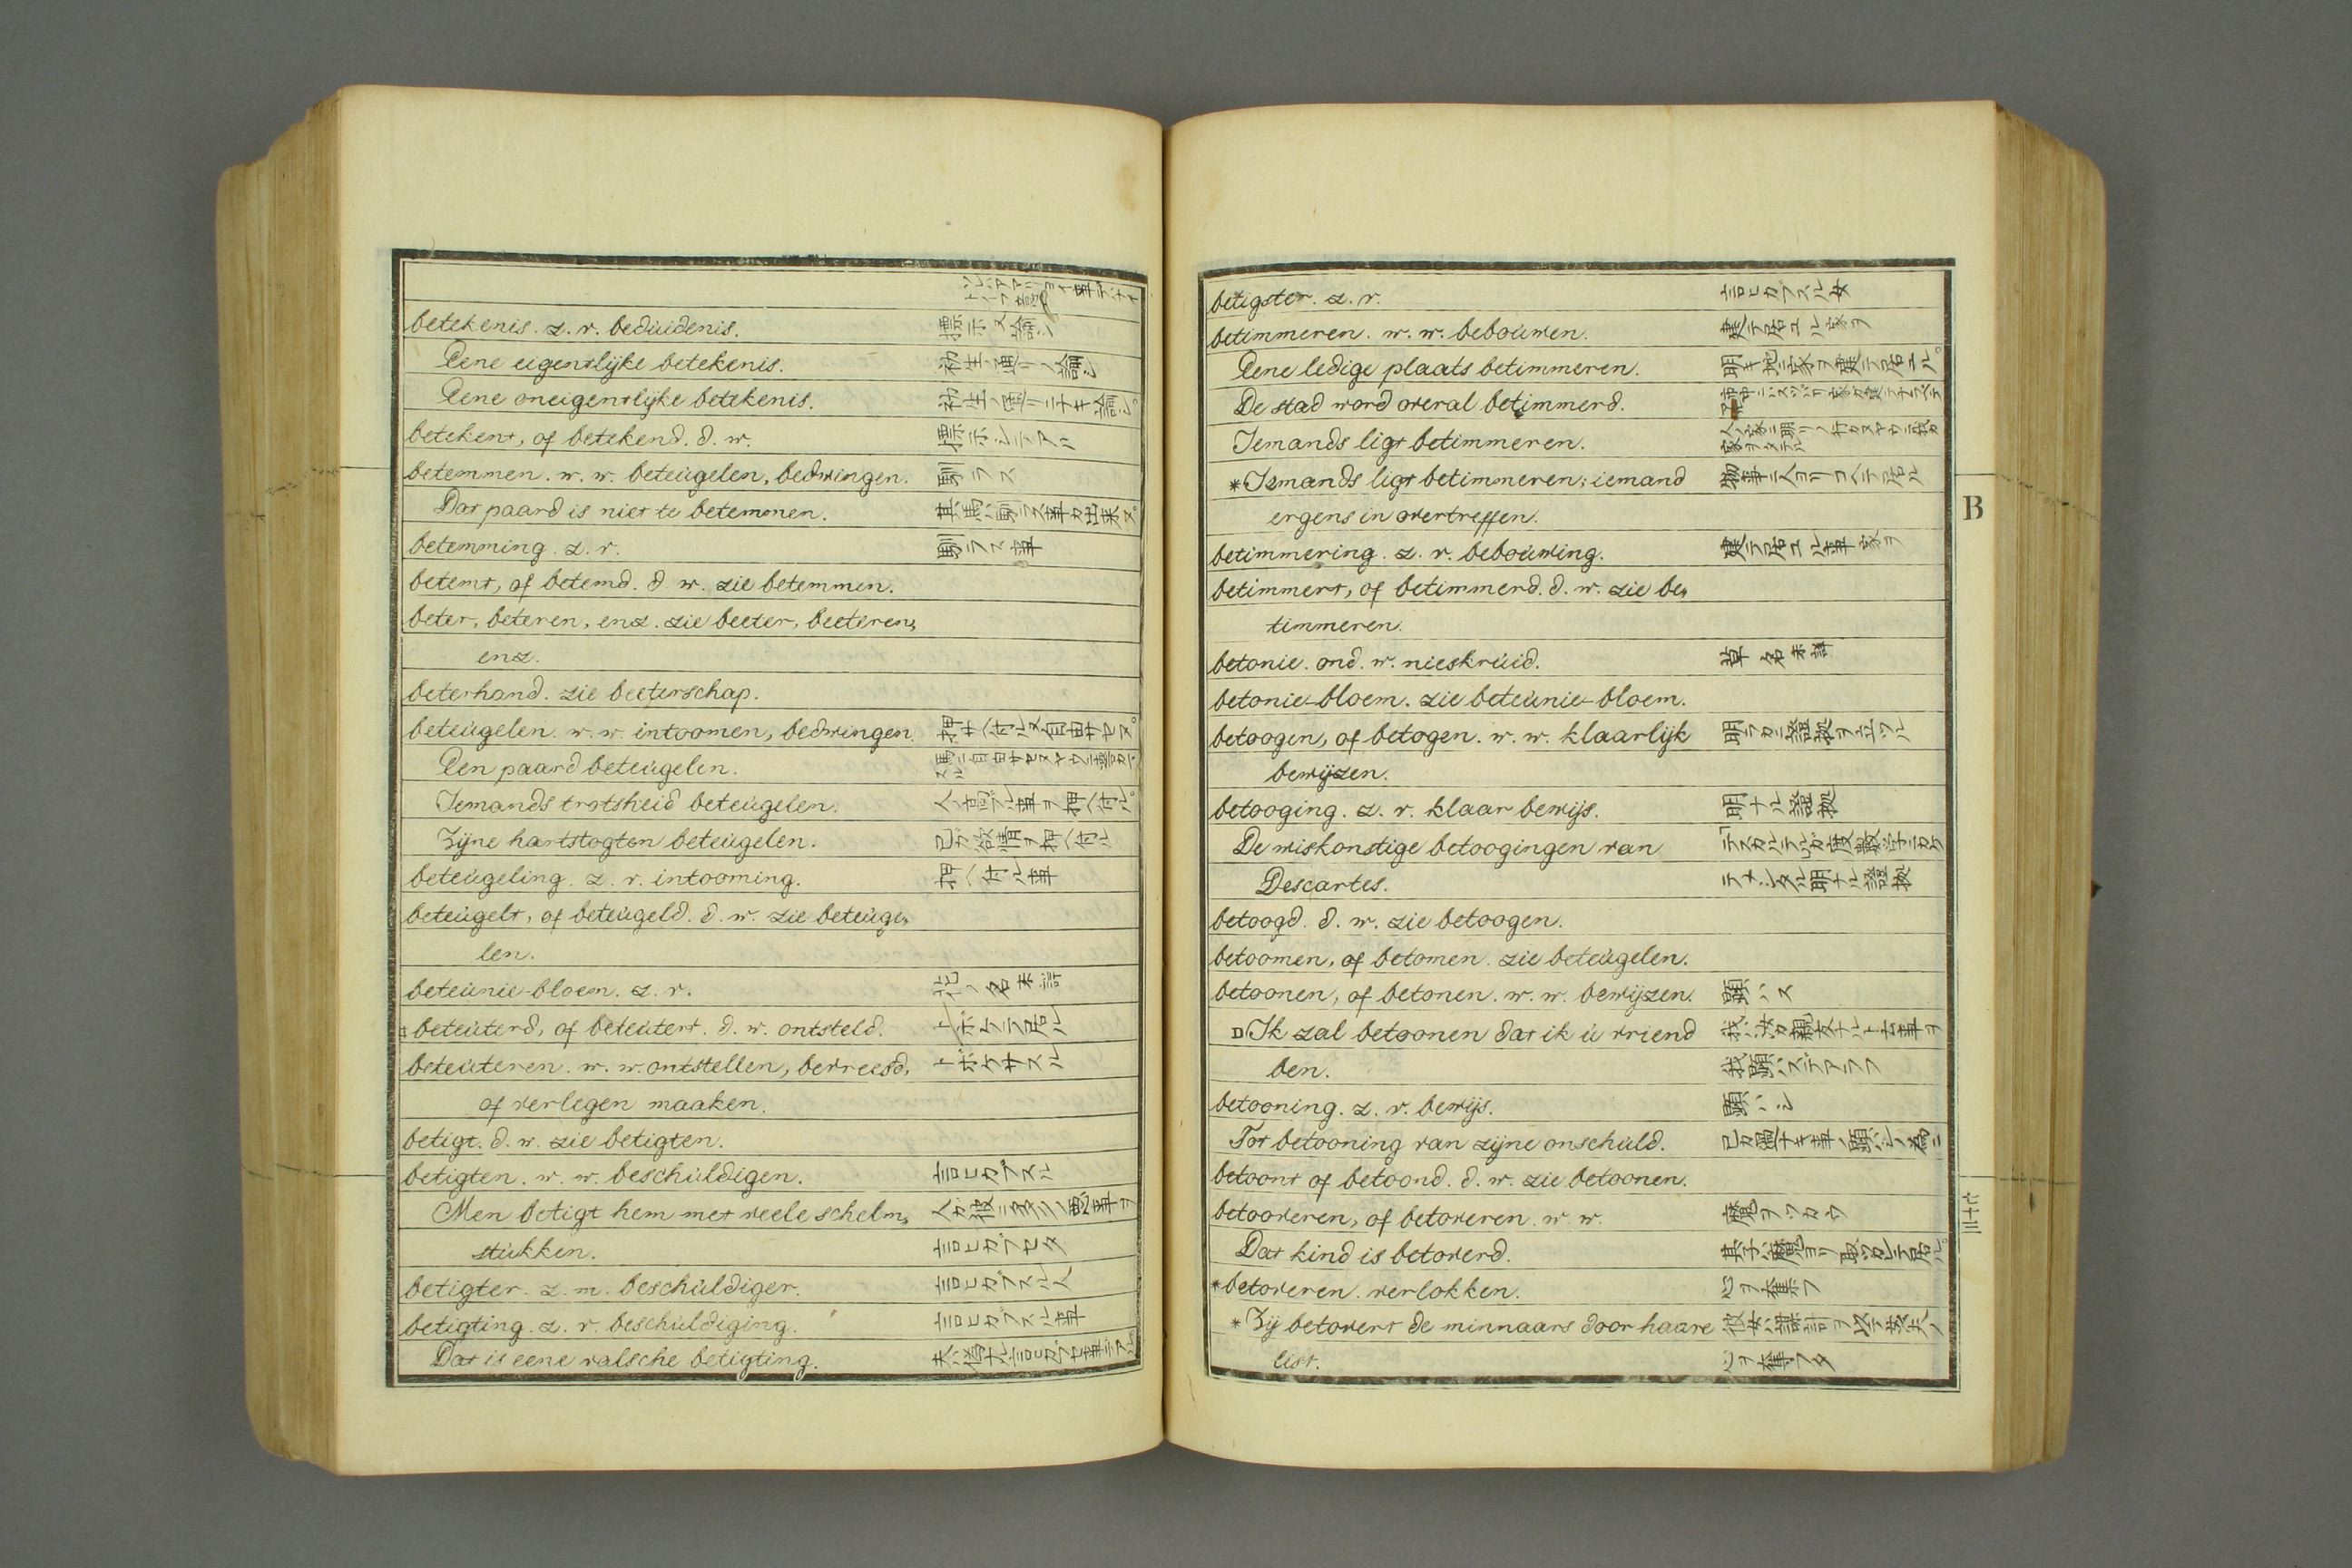 betekenis. z. v. beduidenis. 標示ス 諭シ
Eene eigentlijke betekenis.
Eene oneigentlijke betekenis.
betekent, of betekend. d. w. 標示シテアル
betemmen. w. w. beteugelen, bedwingen. 馴ラス
Dat paard is niet te betemmen. 其馬ハ馴ラス事カ出来ヌ。
betemming. z. v. 馴ラス事
betemt, of betemd. d w. zie betemmen.
beter, beteren, enz. zie beeter, beeteren,
enz.
beterhand. zie beeterschap.
beteugelen. w. w. intoomen, bedwingen. 押ヘ付ル又自由サセヌ。
Een paard beteugelen.
Jemands trotsheid beteugelen. 人ノ高ブル事ヲ押ヘ付ル。
Zijne hartstogten beteugelen. 己カ欲情ヲ押ヘ付ル
beteugeling. z. v. intooming. 押ヘ付ル事
beteugelt, of beteugeld. d. w. zie beteuge,
len.
beteunie-bloem. z. v. 花ノ名未詳
beteuterd, of beteutert. d. w. ontsteld. トボケテ居ル
beteuteren. w. w. ontstellen, bevreesd, トボケサスル
of verlegen maaken.
betigt. d. w. zie betigten.
betigten. w. w. beschuldigen. 言ヒカブスル
Men betigt hem met veele schelm, 人カ彼ニ多クノ悪事ヲ
stukken. 言ヒカブセタ
betigter. z. m. beschuldiger. 言ヒカブスル人
betigting. z. v. beschuldiging. 言ヒカブスル事
Dat is eene valsche betigting.
betigster. z. v. 言ヒカブスル女
betimmeren. w. w. bebouwen. 建テ居ユル 家ヲ
Eene ledige plaats betimmeren. 明キ地ニ家ヲ建テ居ユル。
De stad word overal betimmerd.
Jemands ligt betimmeren.
*Jemands ligt betimmeren; iemand
ergens in overtreffen.
betimmering. z. v. bebouwing. 建テ居ユル事 家ヲ
betimmert, of betimmerd. d. w. zie be,
timmeren.
betonie. ond. w. nieskruid. 草ノ名未詳
betonie-bloem. zie beteunie-bloem.
betoogen, of betogen. w. w. klaarlijk 明ラカニ證拠ヲ立ツル
bewijzen.
betooging. z. v. klaar bewijs. 明ナル證拠
De wiskonstige betoogingen van
Descartes. 明ナル證拠
betoogd. d. w. zie betoogen.
betoomen, of betomen. zie beteugelen.
betoonen, of betonen. w. w. bewijzen. 顕ハス
Ik zal betoonen dat ik u vriend 我ハ汝カ親友ナルト云事ヲ
ben. 我顕ハスデアラフ
betooning. z. v. bewijs. 顕ハシ
Tot betooning van zijne onschuld. 己カ過ナキ事ノ顕ハシノ為ニ
betoont of betoond. d. w. zie betoonen.
betooveren, of betoveren. w. w. 魔ヲツカウ
Dat kind is betoverd.
*betoveren. verlokken. 心ヲ奪フ
*Zij betovert de minnaars door haare
list. 心ヲ奪フタ
B
七十三